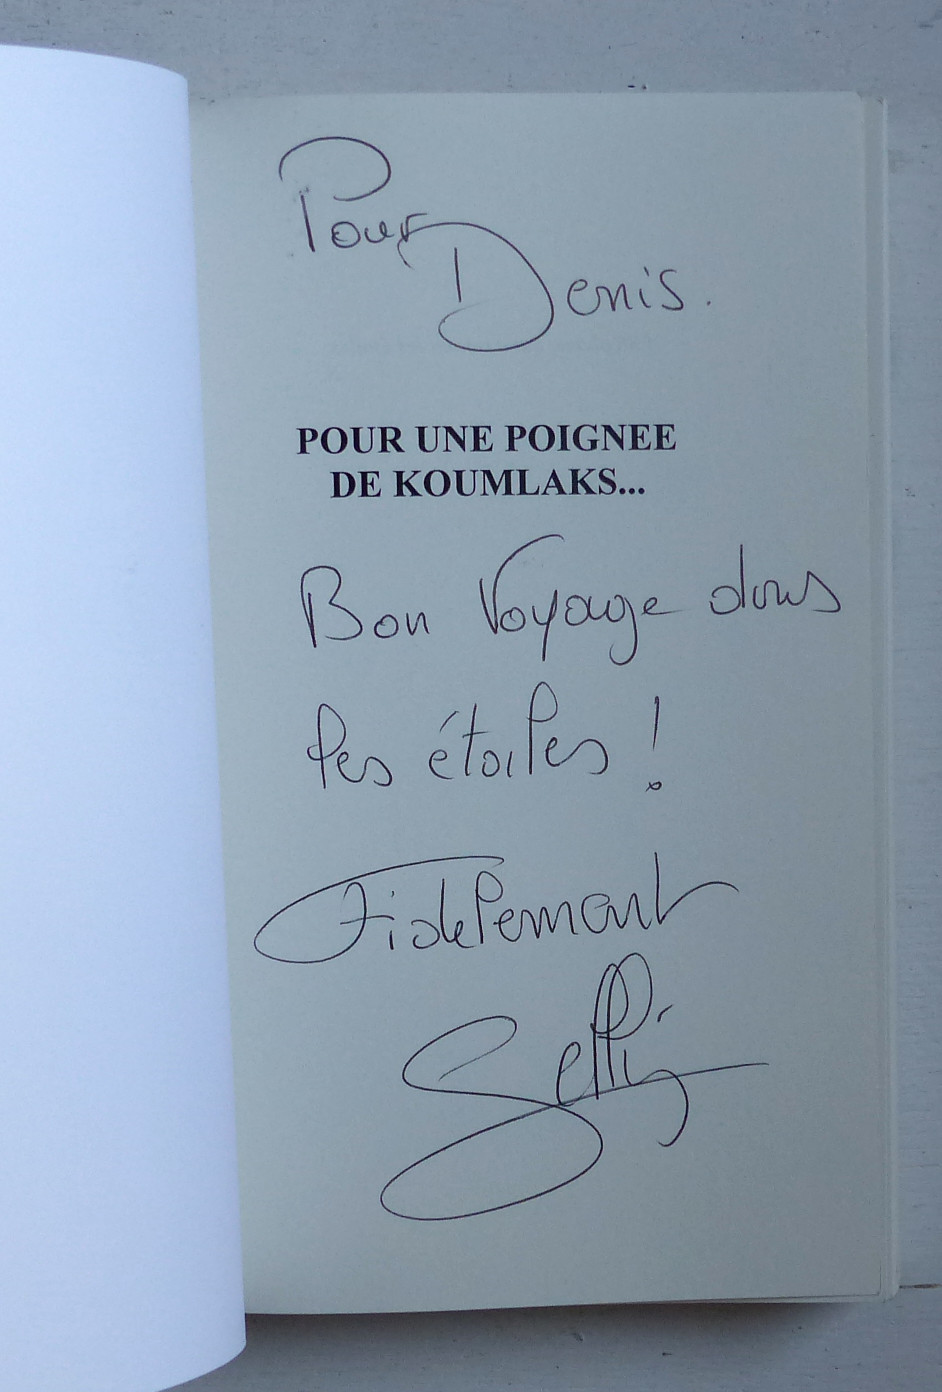 Pour
Denis.
POUR UNE POIGNEE
DE KOUMLAKS...
Bon Voyage dans
les étoiles !
Fidèlement